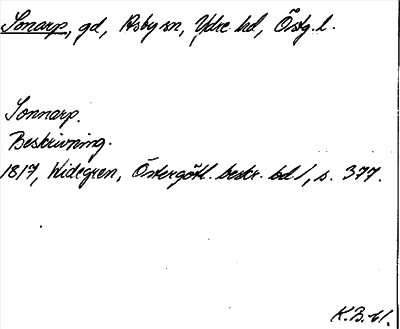 Sonarp, gd, Asby sn, Ydre hd, Östg. l.
Sonnarp.
Beskrivning.
1817, Widegren, Östergötl. beskr. bd 1, s. 377.
K.B.-61.